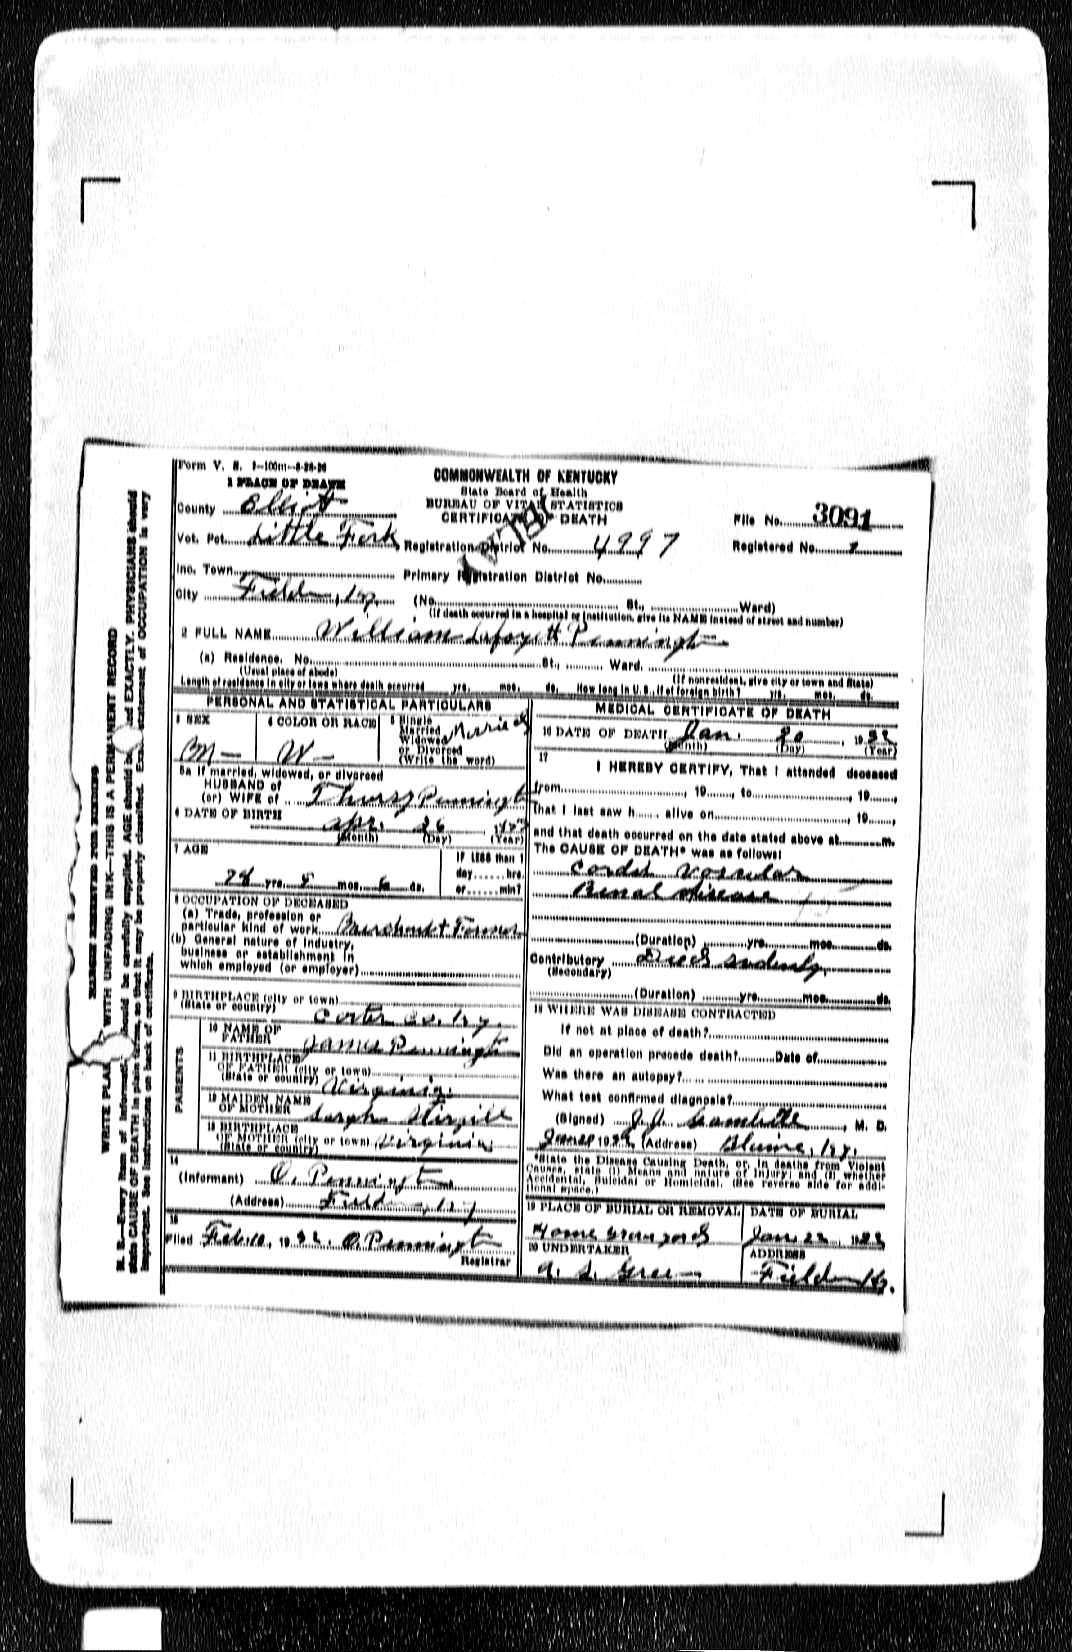 Form V. S. 1-100m-8-28-26
1 PLACE OF DEATH
COMMONWEALTH OF KENTUCKY
State Board of Health
BUREAU OF VITAL STATISTICS
CERTIFICATE OF DEATH
County Elliott
File No. 3091
Vot. Pct. Little Fork
Registration District No. 4997
Registered No. 1
Inc. Town
Primary Registration District No.
City Fielden, Ky.
(No. St., Ward)
(If death occurred in a hospital or institution, give its NAME instead of street and number)
2 FULL NAME William Lafayett Pennington
(a) Residence. No. St., Ward.
(Usual place of abode) (If nonresident, give city or town and State)
Length of residence in city or town where death occurred yrs. mos. ds. How long in U. S., if of foreign birth? yrs. mos. ds.
PERSONAL AND STATISTICAL PARTICULARS
3 SEX
M
4 COLOR OR RACE
W
5 Single
Married
Widowed
or Divorced
(Write the word)
Married
5a If married, widowed, or divorced
HUSBAND of
(or) WIFE of Thursy Pennington
6 DATE OF BIRTH
Apr. 26
(Month) (Day) (Year)
7 AGE
yrs. mos. ds.
IF LESS than 1
day hrs.
or min?
8 OCCUPATION OF DECEASED
(a) Trade, profession or
particular kind of work Merchant & Farmer
(b) General nature of industry,
business or establishment in
which employed (or employer)
9 BIRTHPLACE (city or town)
(State or country) Carter Co. Ky.
PARENTS
10 NAME OF
FATHER James Pennington
11 BIRTHPLACE
OF FATHER (city or town)
(State or country) Virginia
12 MAIDEN NAME
OF MOTHER Sarah
13 BIRTHPLACE
OF MOTHER (city or town)
(State or country) Virginia
14
(Informant) O. Pennington
(Address) Fielden, Ky
15
Filed Feb. 10, 1932. O. Pennington
Registrar
MEDICAL CERTIFICATE OF DEATH
16 DATE OF DEATH Jan. 20, 1932
(Month) (Day) (Year)
17
I HEREBY CERTIFY, That I attended deceased
from , 19 , to , 19 ,
that I last saw h alive on , 19 ,
and that death occurred on the date stated above at m.
The CAUSE OF DEATH* was as follows:
Cardio Vascular
Renal disease
(Duration) yrs. mos. ds.
Contributory Died sudenly
(Secondary)
(Duration) yrs. mos. ds.
18 WHERE WAS DISEASE CONTRACTED
If not at place of death?
Did an operation precede death? Date of
Was there an autopsy?
What test confirmed diagnosis?
(Signed) J. J. Gambill, M. D.
1932 (Address) Blaine, Ky.
*State the Disease Causing Death, or, in deaths from Violent
Causes, state (1) Means and nature of Injury; and (2) whether
Accidental, Suicidal or Homicidal. (See reverse side for addi-
tional space.)
19 PLACE OF BURIAL OR REMOVAL
Home Graveyard
DATE OF BURIAL
Jan 22, 1932
20 UNDERTAKER
ADDRESS
Fielden Ky.
MARGIN RESERVED FOR BINDING
WRITE PLAINLY WITH UNFADING INK—THIS IS A PERMANENT RECORD
N. B.—Every item of information should be carefully supplied. AGE should be stated EXACTLY. PHYSICIANS should
state CAUSE OF DEATH in plain terms, so that it may be properly classified. Exact statement of OCCUPATION is very
important. See instructions on back of certificate.